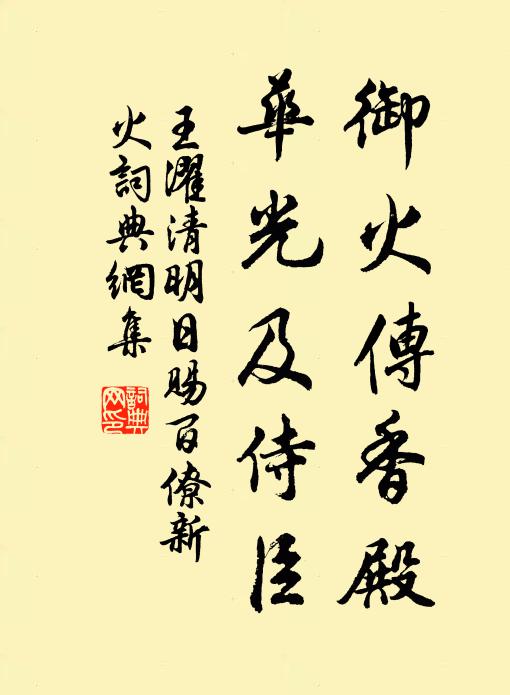 御火傳香殿
華光及侍臣
王濯清明日賜百僚新
火詞典網集
詞典
网印